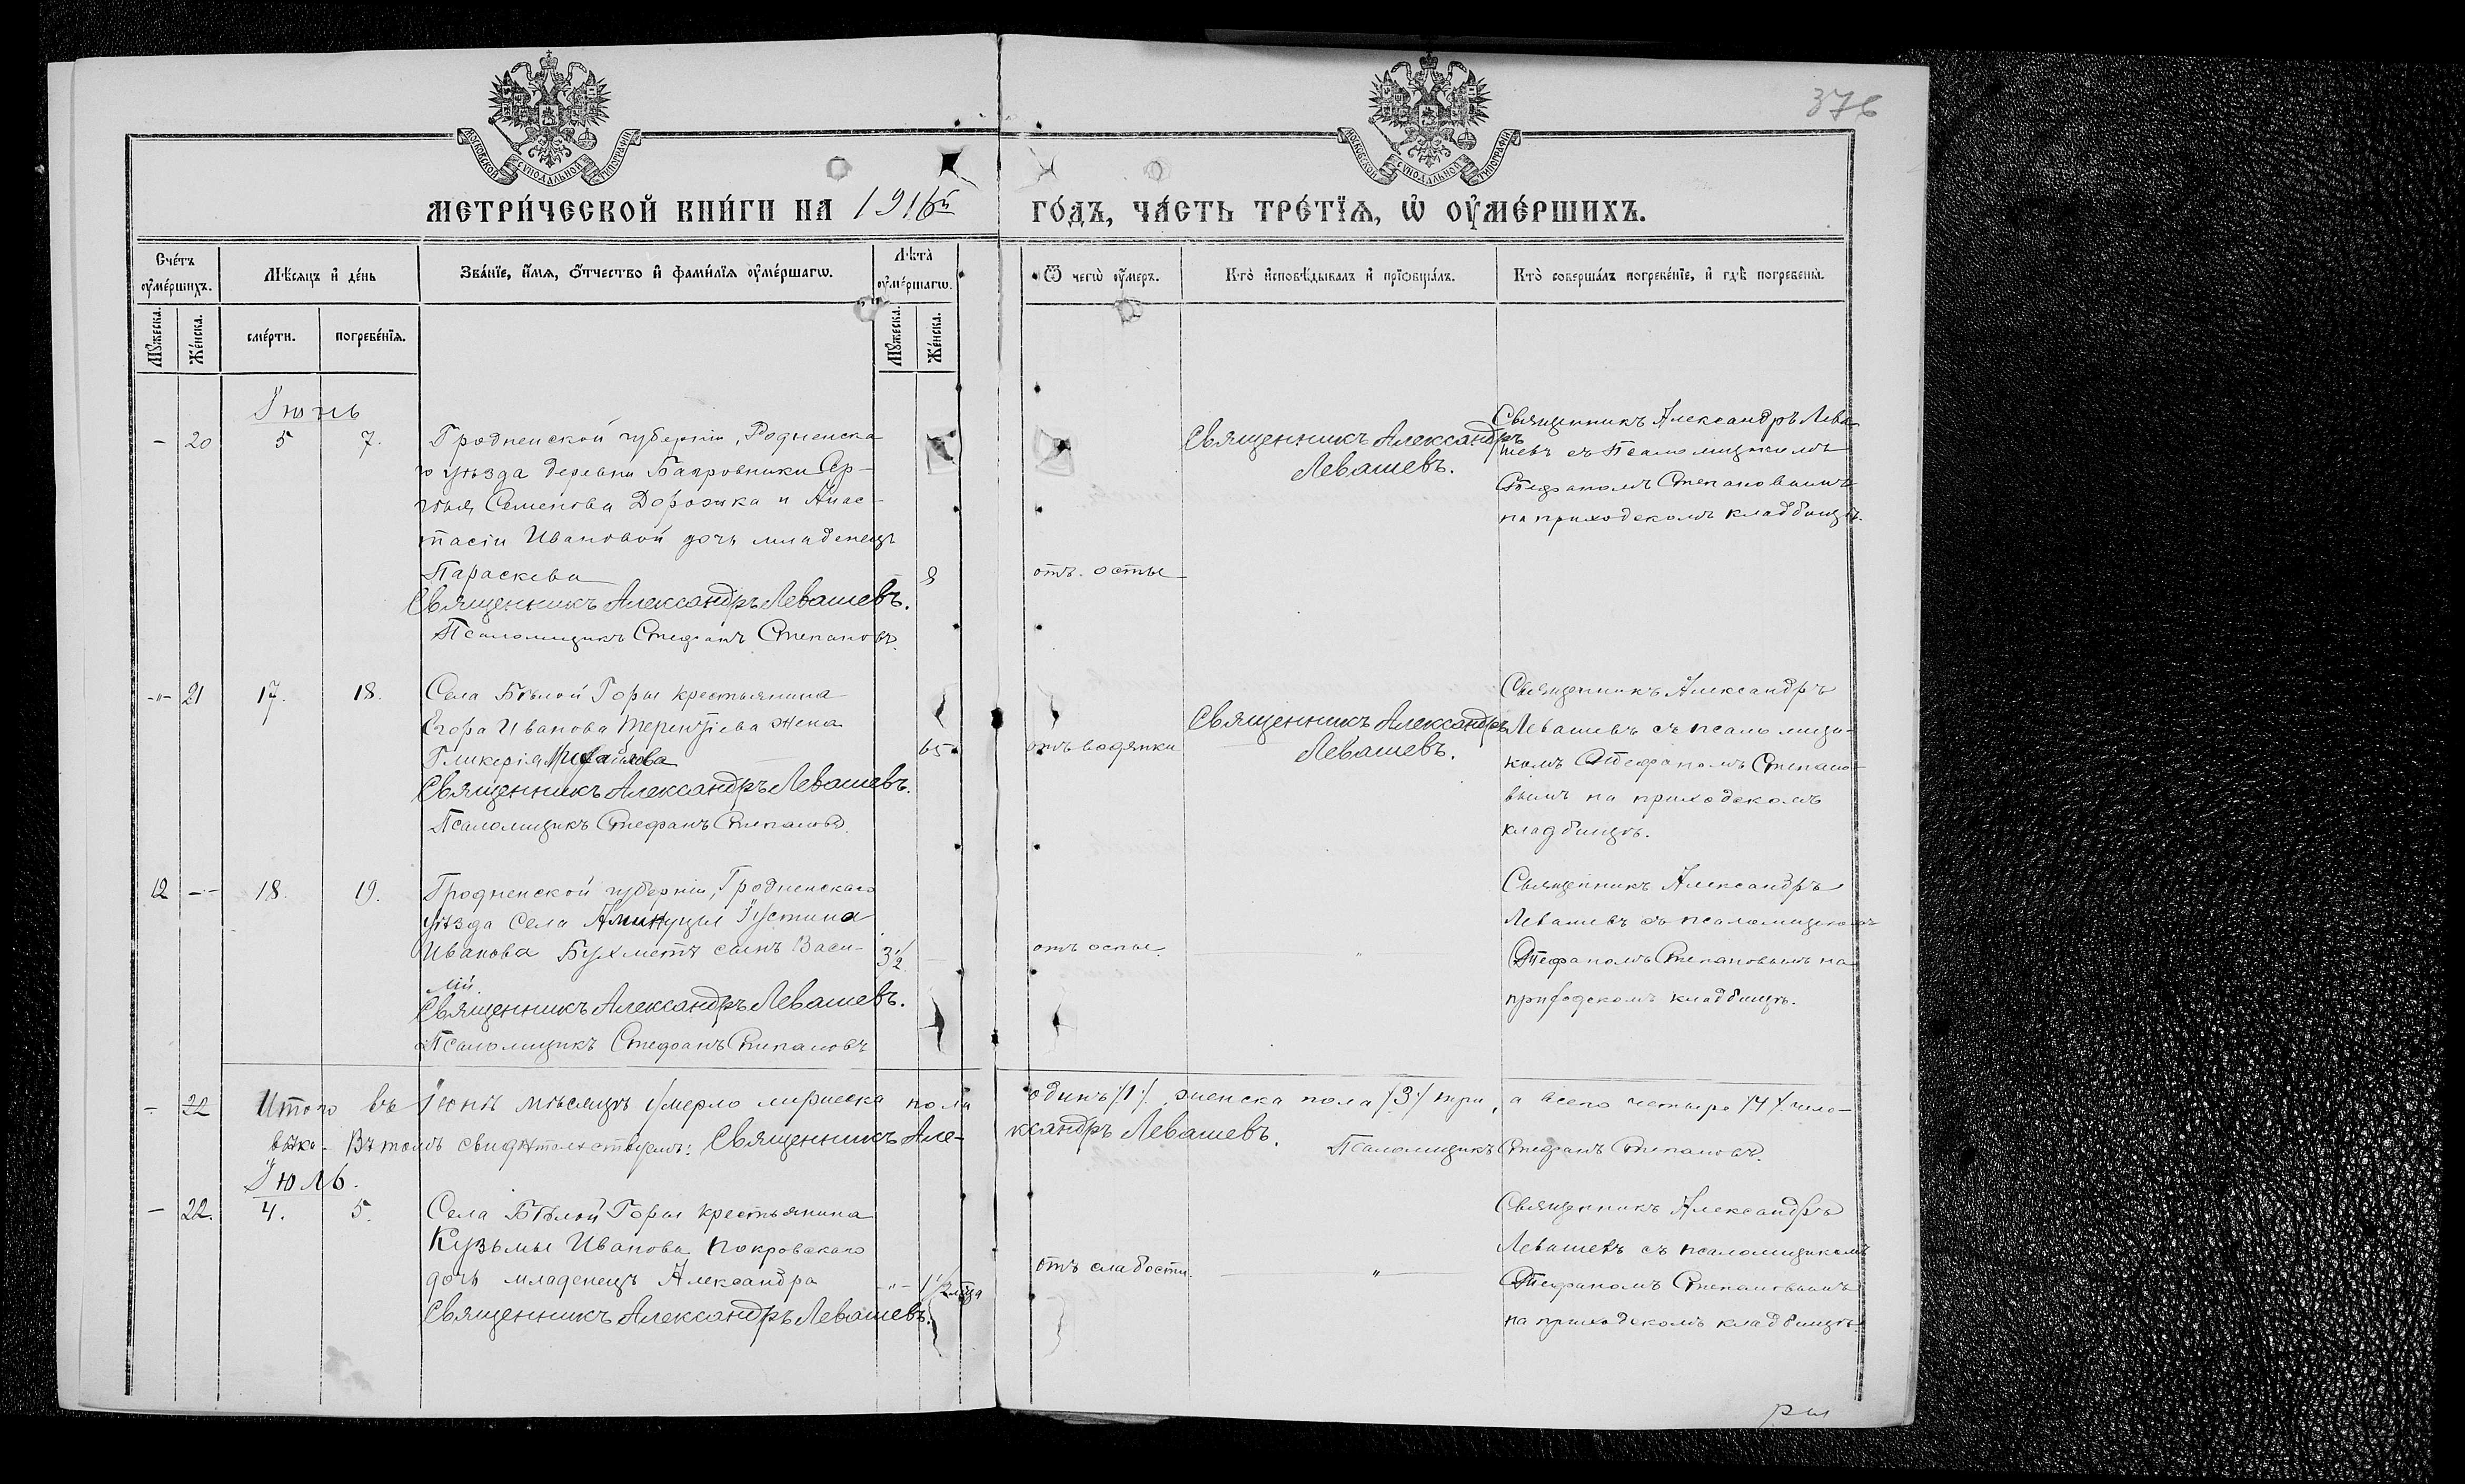 376
МОСКОВСКОЙ СѴНОДАЛЬНОЙ ТИПОГРАФІИ
МОСКОВСКОЙ СѴНОДАЛЬНОЙ ТИПОГРАФІИ
МЕТРИ́ЧЕСКОЙ КНИ́ГИ НА 1916й ГО́ДЪ, ЧА́СТЬ ТРЕ́ТІѦ, Ѡ҆ ОУ҆МЕ́РШИХЪ.
Сче́тъ оу҆ме́ршихъ.
Мѣ́сяцъ и҆ де́нь
Зва́нїе, и҆́мѧ, ѻ҆́тчество и҆ фами́лїѧ оу҆ме́ршагѡ.
Лѣ́та оу҆ме́ршагѡ.
Ѿ чегѡ̀ оу҆́меръ.
Кто̀ и҆сповѣ́дывалъ и҆ прїѡбща́лъ.
Кто̀ соверша́лъ погребе́нїе, и҆ гдѣ̀ погребены̀.
Мꙋ́жеска.
Же́нска.
сме́рти.
погребе́нїѧ.
Мꙋ́жеска.
Же́нска.
Іюнь
- 20 5 7.
Гродненской губерніи, Родненска
го уѣзда деревни Баяровники Ар-
Семенова Дорожка и Анас-
тасіи Ивановой дочь младенецъ
Параскева - 8
Священникъ Александръ Левашевъ.
Псаломщикъ Стефанъ Степановъ.
отъ
Священникъ Александръ
Левашевъ.
Священникъ Александръ Лева
шевъ съ Псаломщикомъ
Стефаномъ Степановымъ
на приходскомъ кладбищѣ.
-"- 21 17. 18.
Села Бѣлой Горы крестьянина
Егора Иванова Терентіева жена
Гликерія Михайлова 65
Священникъ Александръ Левашевъ.
Псаломщикъ Стефанъ Степановъ.
отъ водянки
Священникъ Александръ
Левашевъ.
Священникъ Александръ
Левашевъ съ псаломщи-
комъ Стефаномъ Степано-
вымъ на приходскомъ
кладбищѣ.
12 - 18. 19.
Гродненской губерніи, Гродненскаго
уѣзда села Іустина
Иванова Бухметъ сынъ Васи- 3½ -
лій.
Священникъ Александръ Левашевъ.
Псаломщикъ Стефанъ Степановъ
отъ оспы.
"
Священникъ Александръ
Левашевъ съ псаломщикомъ
Стефаномъ Степановымъ на
приходскомъ кладбищѣ.
- 22 Итого въ Іюнѣ мѣсяцѣ умерло мужеска пола одинъ /1/. женска пола /3/ три, а всего четыре /4/. чело-
вѣка. Въ томъ свидѣтельствуемъ: Священникъ Александръ Левашевъ. Псаломщикъ Стефанъ Степановъ.
Іюль.
- 22. 4. 5.
Села Бѣлой Горы крестьянина
Кузьмы Иванова Покровскаго
дочь младенецъ Александра -"- 1½
Священникъ Александръ Левашевъ.
отъ слабости.
"
Священникъ Александръ
Левашевъ съ псаломщикомъ
Стефаномъ Степановымъ
на приходскомъ кладбищѣ.